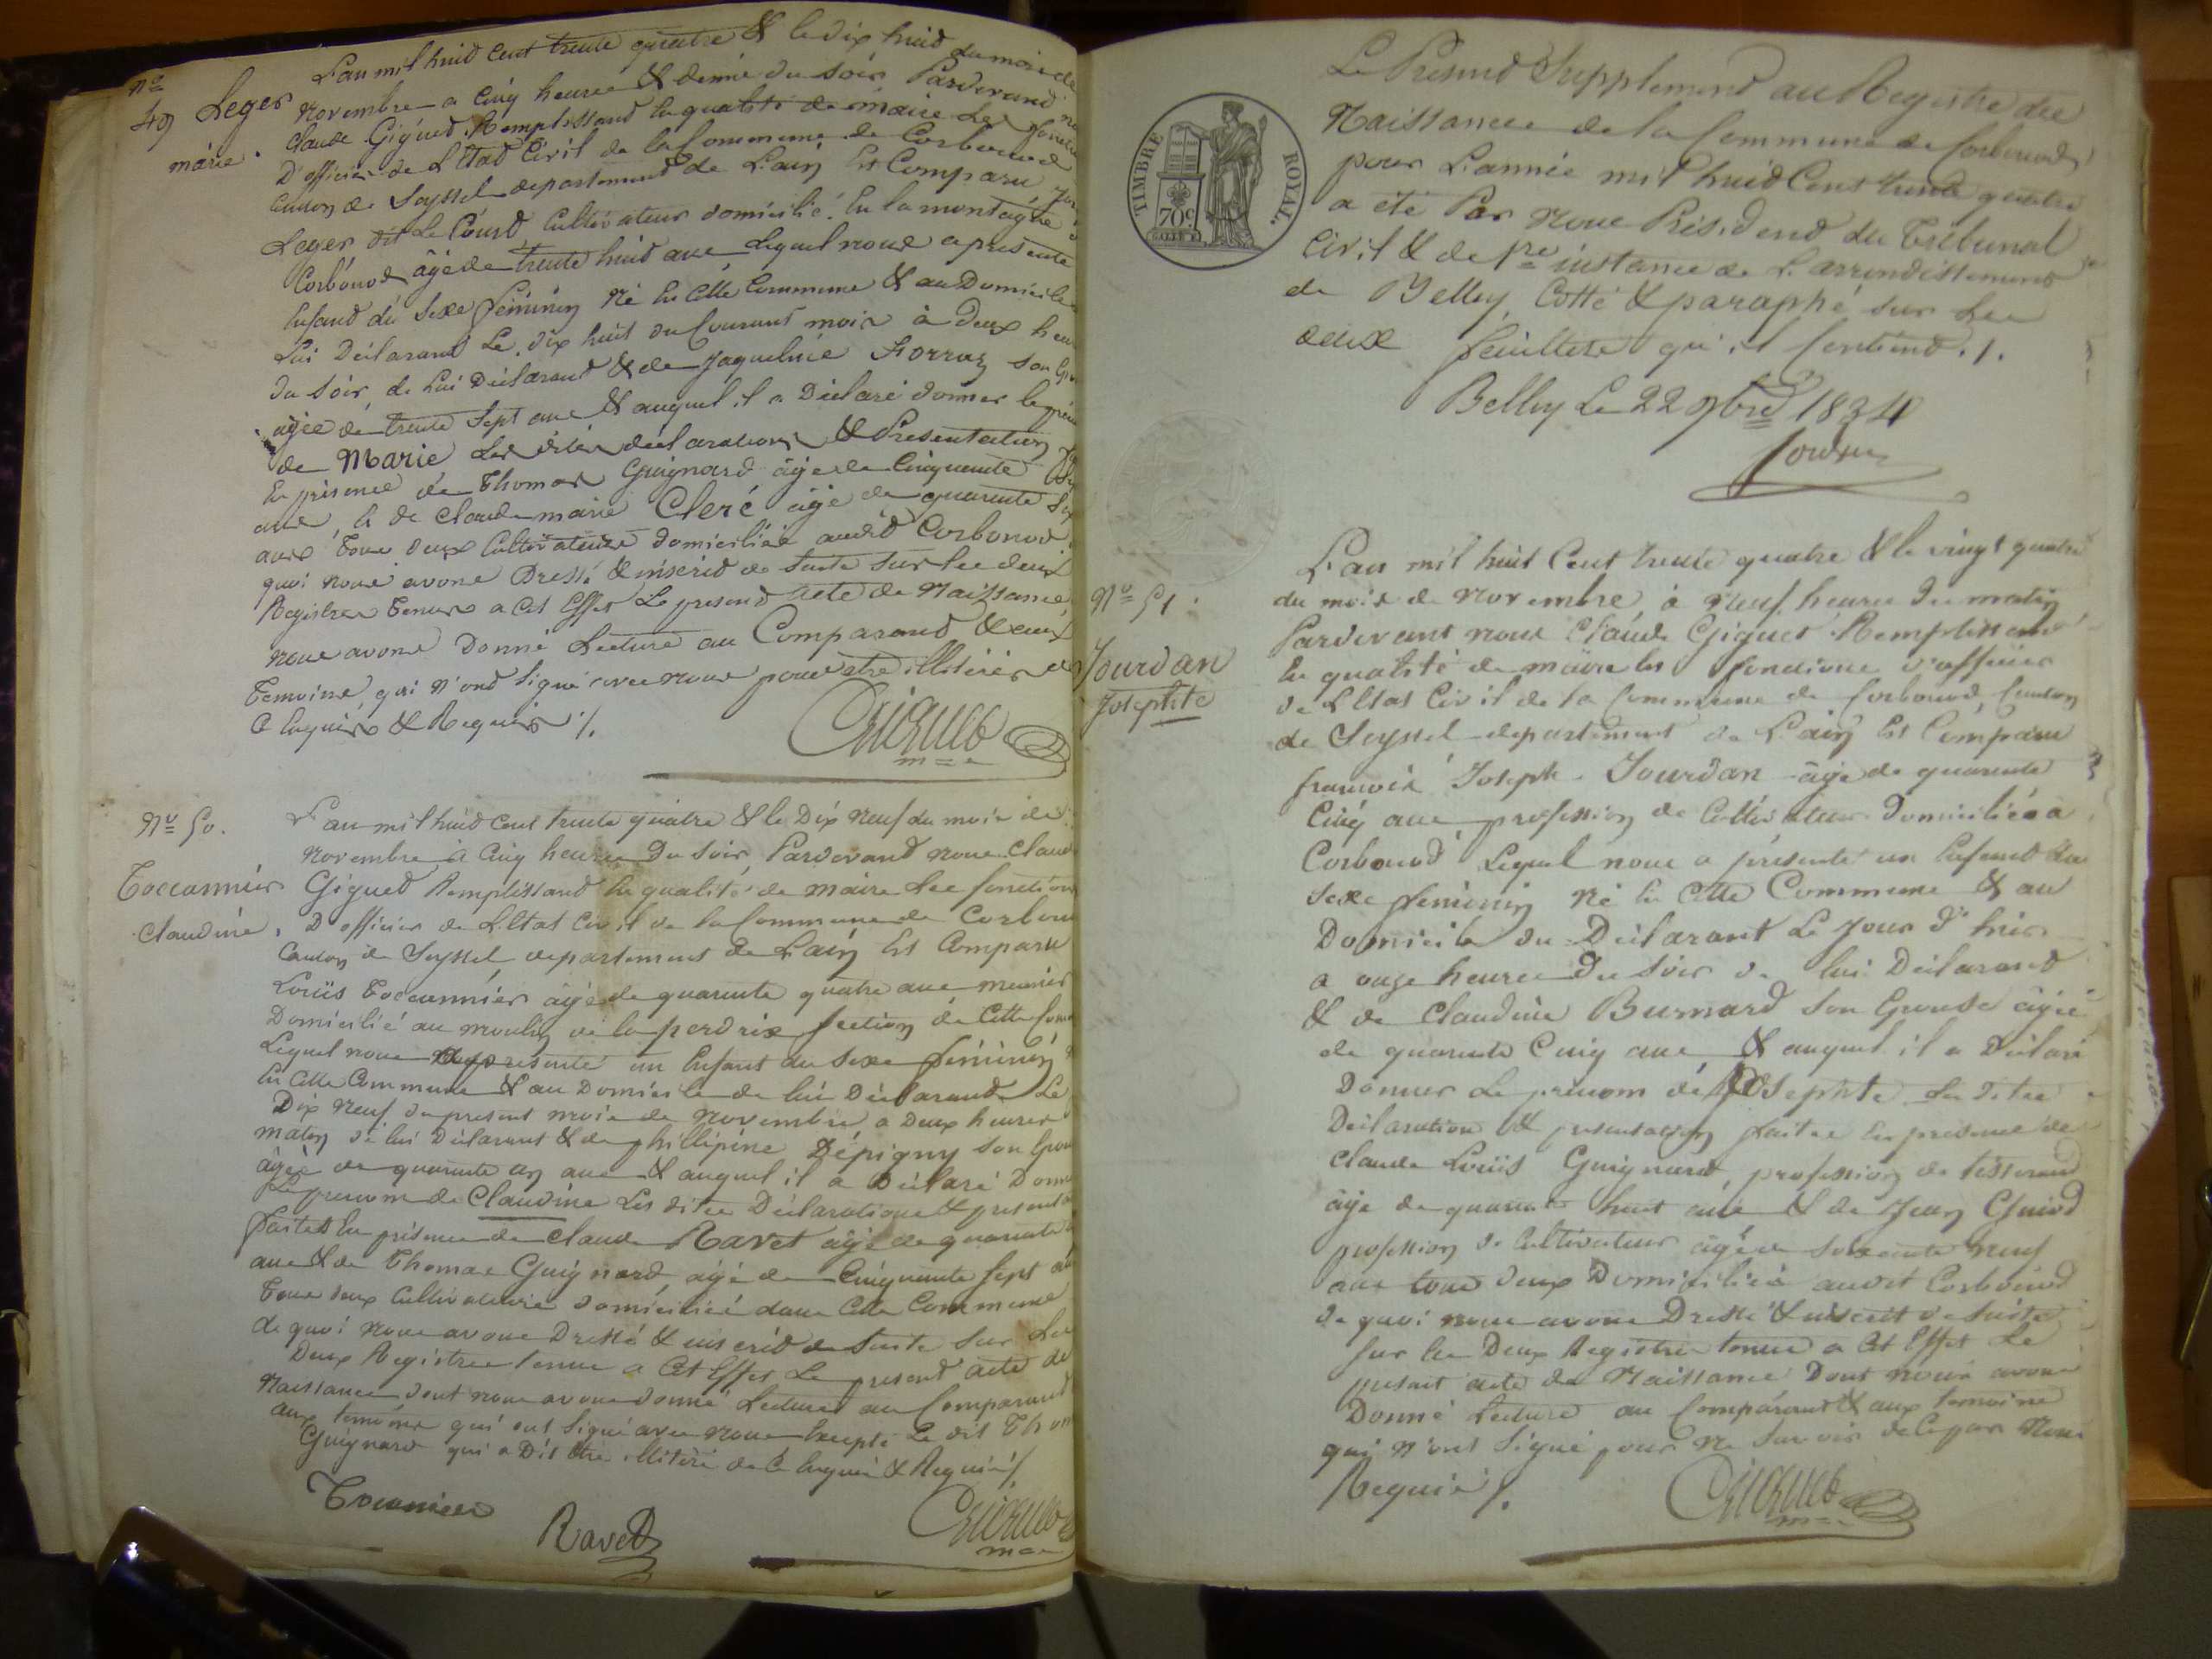 Nº
49 Leger
marie.
L'an mil huid Cent trente quatre & le dix huid du mois de
novembre a Cinq heures & demie du soir Pardevand
Claude Giguet Remplissant En qualité de maire Les
D'officier de L'Etat Civil de la Commune de Corbonod
Canton de Seyssel departement de L'ain Est Comparu
Leger dit Le Court Cultivateur domicilié En la montagne
Corbonod âgé de trente huid ans Lequel nous a presenté
Enfand du sexe féminin Né En Cette Commune & au Domicile
Lui Déclarand Le dix huit du Courant mois à deux heu
du soir, de Lui Déclarand & de Jaqueline
âgée de trente Sept ans & auquel il a Déclaré donner le
de Marie Les dites déclarations & Présentation
En présence de Thomas Guignard âgé de Cinquante
ans, & de Claude marie Cleré âgé de quarante six
ans Tous deux Cultivateurs domiciliés audid Corbonod
quoi nous avons Dressé & inscrid de suite sur les deux
Registres Tenus a Cet Effet Le présend acte de Naissance
nous avons Donné Lecture au Comparand & aux
Temoins, qui n'ond signé avec nous pour être illitérés de
Ce Enquis & Requis /.
Giguet
m = e
Nº 50.
Toccannier
Claudine.
L'an mil huid Cent trente quatre & le Dix Neuf du mois de
novembre à Cinq heures du soir, Pardevand nous Claud
Giguet Remplissand En qualité de maire Les fonctions
D'officier de L'Etat Civil de la Commune de Corbon
Canton de Seyssel, departement de L'ain Est Comparu
Louis Toccannier âgé de quarante quatre ans meunier
Domicilié au moulin de la perdrix section de Cette Com
Lequel nous a présenté un Enfant du sexe féminin
En Cette Commune & au Domicile de lui Déclarand Le
Dix Neuf du present mois de novembre a Deux heures
matin de lui Déclarant & de phillipine Dépigny son Epou
âgée de quarante un ans & auquel il a Déclaré Donn
Le prenom de Claudine Les dites Déclarations & present
faites En présence de Claude Ravet âgé de quarante
ans & de Thomas Guignard, âgé de Cinquante sept
Tous deux Cultivateurs domiciliés dans Cette Commune
de quoi nous avons Dressé & inscrid de suite sur Les
Deux Registres tenus a Cet Effet Le present acte de
Naissance dont nous avons donné Lecture au Comparand
aux temoins qui ont signé avec nous Excepté Le dit Thom
Guignard qui a Dit être illitéré de Ce Enquis & Requis /
Tocanier
Ravet
Giguet
m = e
TIMBRE ROYAL.
70c
Le Présend Supplement au Registre des
Naissances de la Commune de Corbonod
pour L'année mil huid Cent trente quatre
a été Par nous Président du Tribunal
Civil & de Pre instance de L'arrondissement
de Belley, Cotté & paraphé sur Les
deux feuillets qu'il Contiend. /.
Belley Le 22 9bre 1834
Nº 51.
Jourdan
Josephte
L'an mil huit Cent trente quatre & le vingt quatre
du mois de Novembre, à Neuf heures du matin
Pardevant nous Claude Giguet Remplissant
En qualité de maire les fonctions d'officier
de L'Etat Civil de la Commune de Corbonod, Canton
de Seyssel departement de L'ain Est Comparu
françois Joseph Jourdan âgé de quarante
Cinq ans, profession de Cultivateur Domiciliés a
Corbonod Lequel nous a présenté un Enfand du
sexe féminin Né En Cette Commune & au
Domicile du Déclarant Le Jour d'hier
a onze heures du soir de lui Déclarand
& de Claudine Burnard son Epouse âgée
de quarante Cinq ans & auquel il a Déclaré
Donner Le prenom de Josephte Les dites
Déclaration & presentation faites En presence de
Claude Louis Guignard, profession de tisserand
âgé de quarante huit ans & de Jean Guiod
profession de Cultivateur âgé de soixante neuf
ans tous deux Domiciliés audit Corbonod
de quoi nous avons Dressé & inscrit de suite
sur les Deux Registres tenus a Cet Effet Le
présent acte de Naissance Dont nous avons
Donné Lecture au Comparand & aux temoins
qui n'ont signé pour ne savoir de Ce par nous
Requis /.
Giguet
m = e